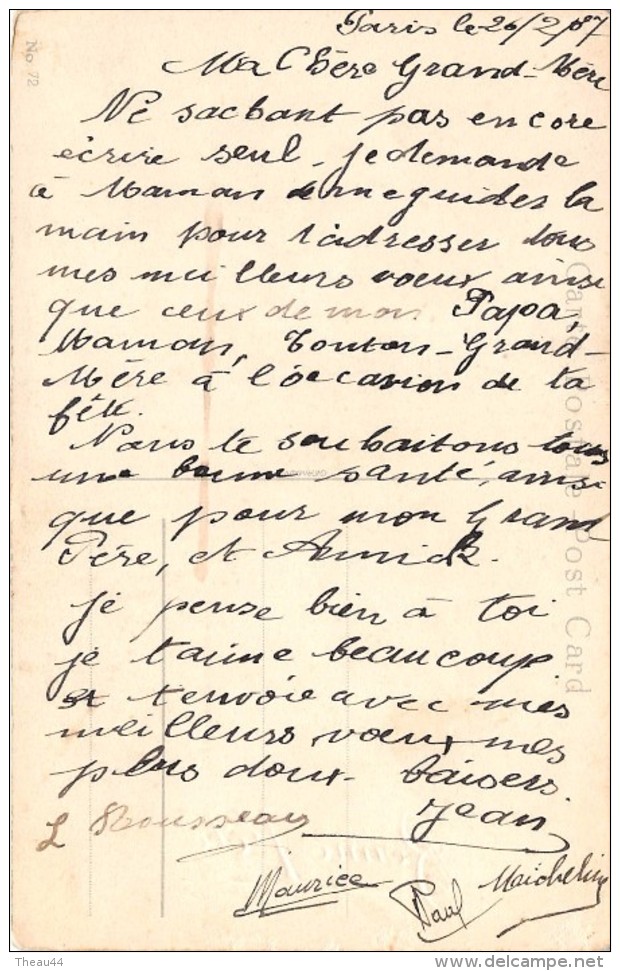 Paris le 26/2/07
Ma Chère Grand-Mère
Ne sachant pas encore
écrire seul, je demande
à Maman de me guider la
main pour t'adresser tous
mes meilleurs voeux ainsi
que ceux de mon Papa,
Maman, Tonton-Grand-
Mère à l'occasion de ta
fête.
Nous te souhaitons tous
une bonne santé, ainsi
que pour mon Grand
Père, et Annick.
Je pense bien à toi
je t'aime beaucoup
et t'envoie avec mes
meilleurs voeux mes
plus doux baisers.
Jean
L Rousseau
Maurice
Paul
Micheline
No. 72
Carte Postale - Post Card
Theau44
www.delcampe.net